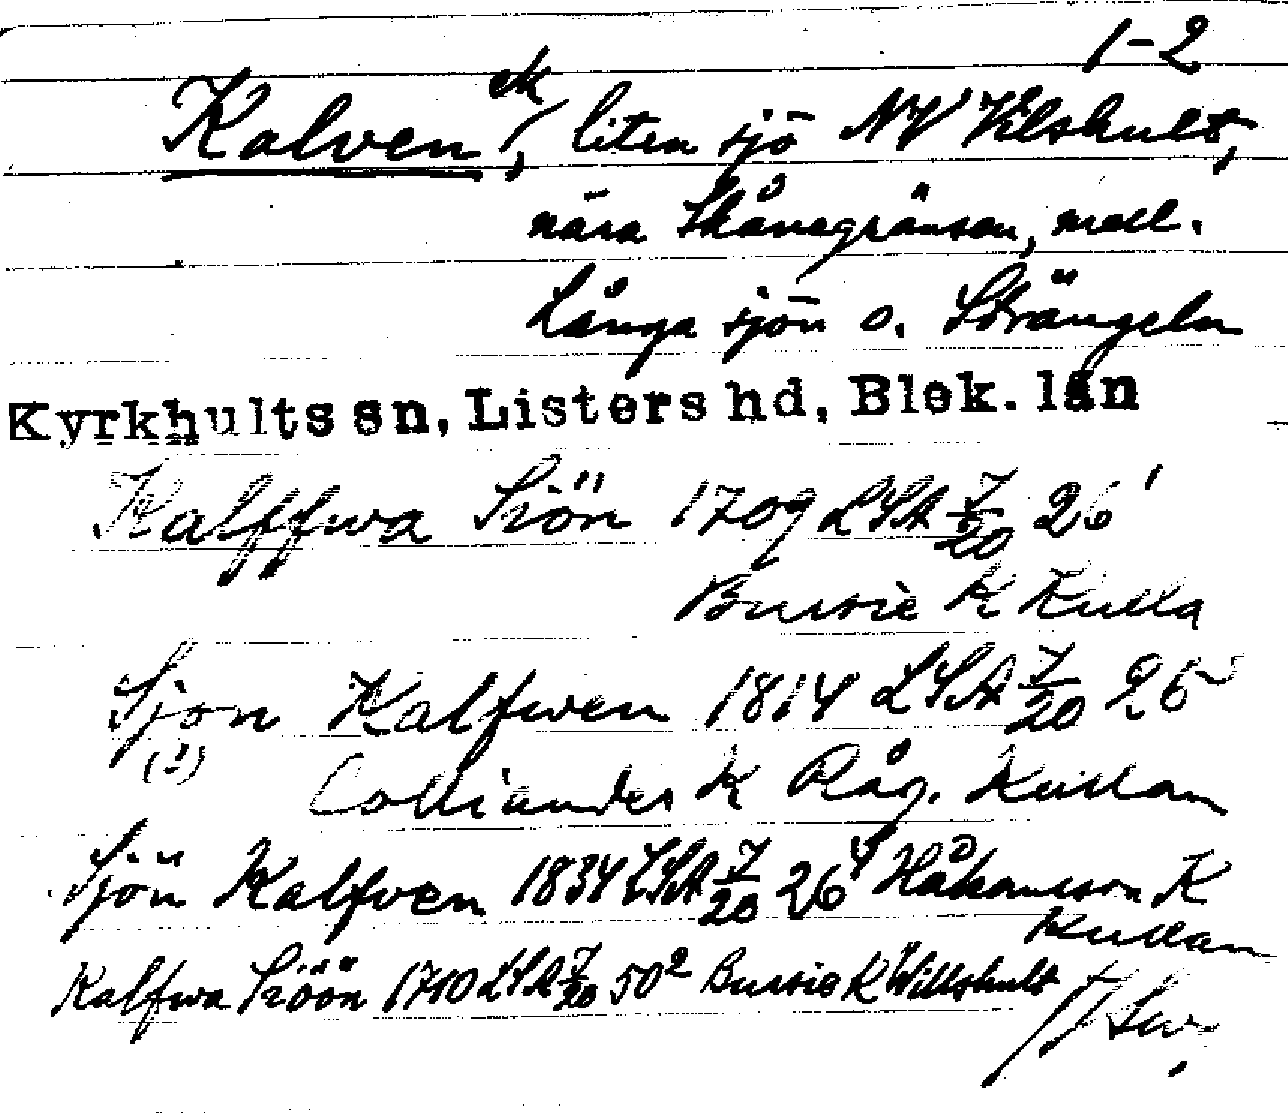 1-2
Kalven ek/, liten sjö NV Vilshult,
nära Skånegränsen, mell.
Långa sjön o. Strängeln
Kyrkhults sn, Listers hd, Blek. län
Kalffwa Siön 1709 LSA 7/20 26¹
Bursie K Kulla
Sjon Kalfwen 1814 LSA 7/20 26
(!)
Colliander K Råg. Kullan
Sjön Kalfven 1834 LSA 7/20 26⁴ Håkansson K
Kullan
Kalfwa Siöön 1710 LSA 7/20 50² Bursie K Willshult